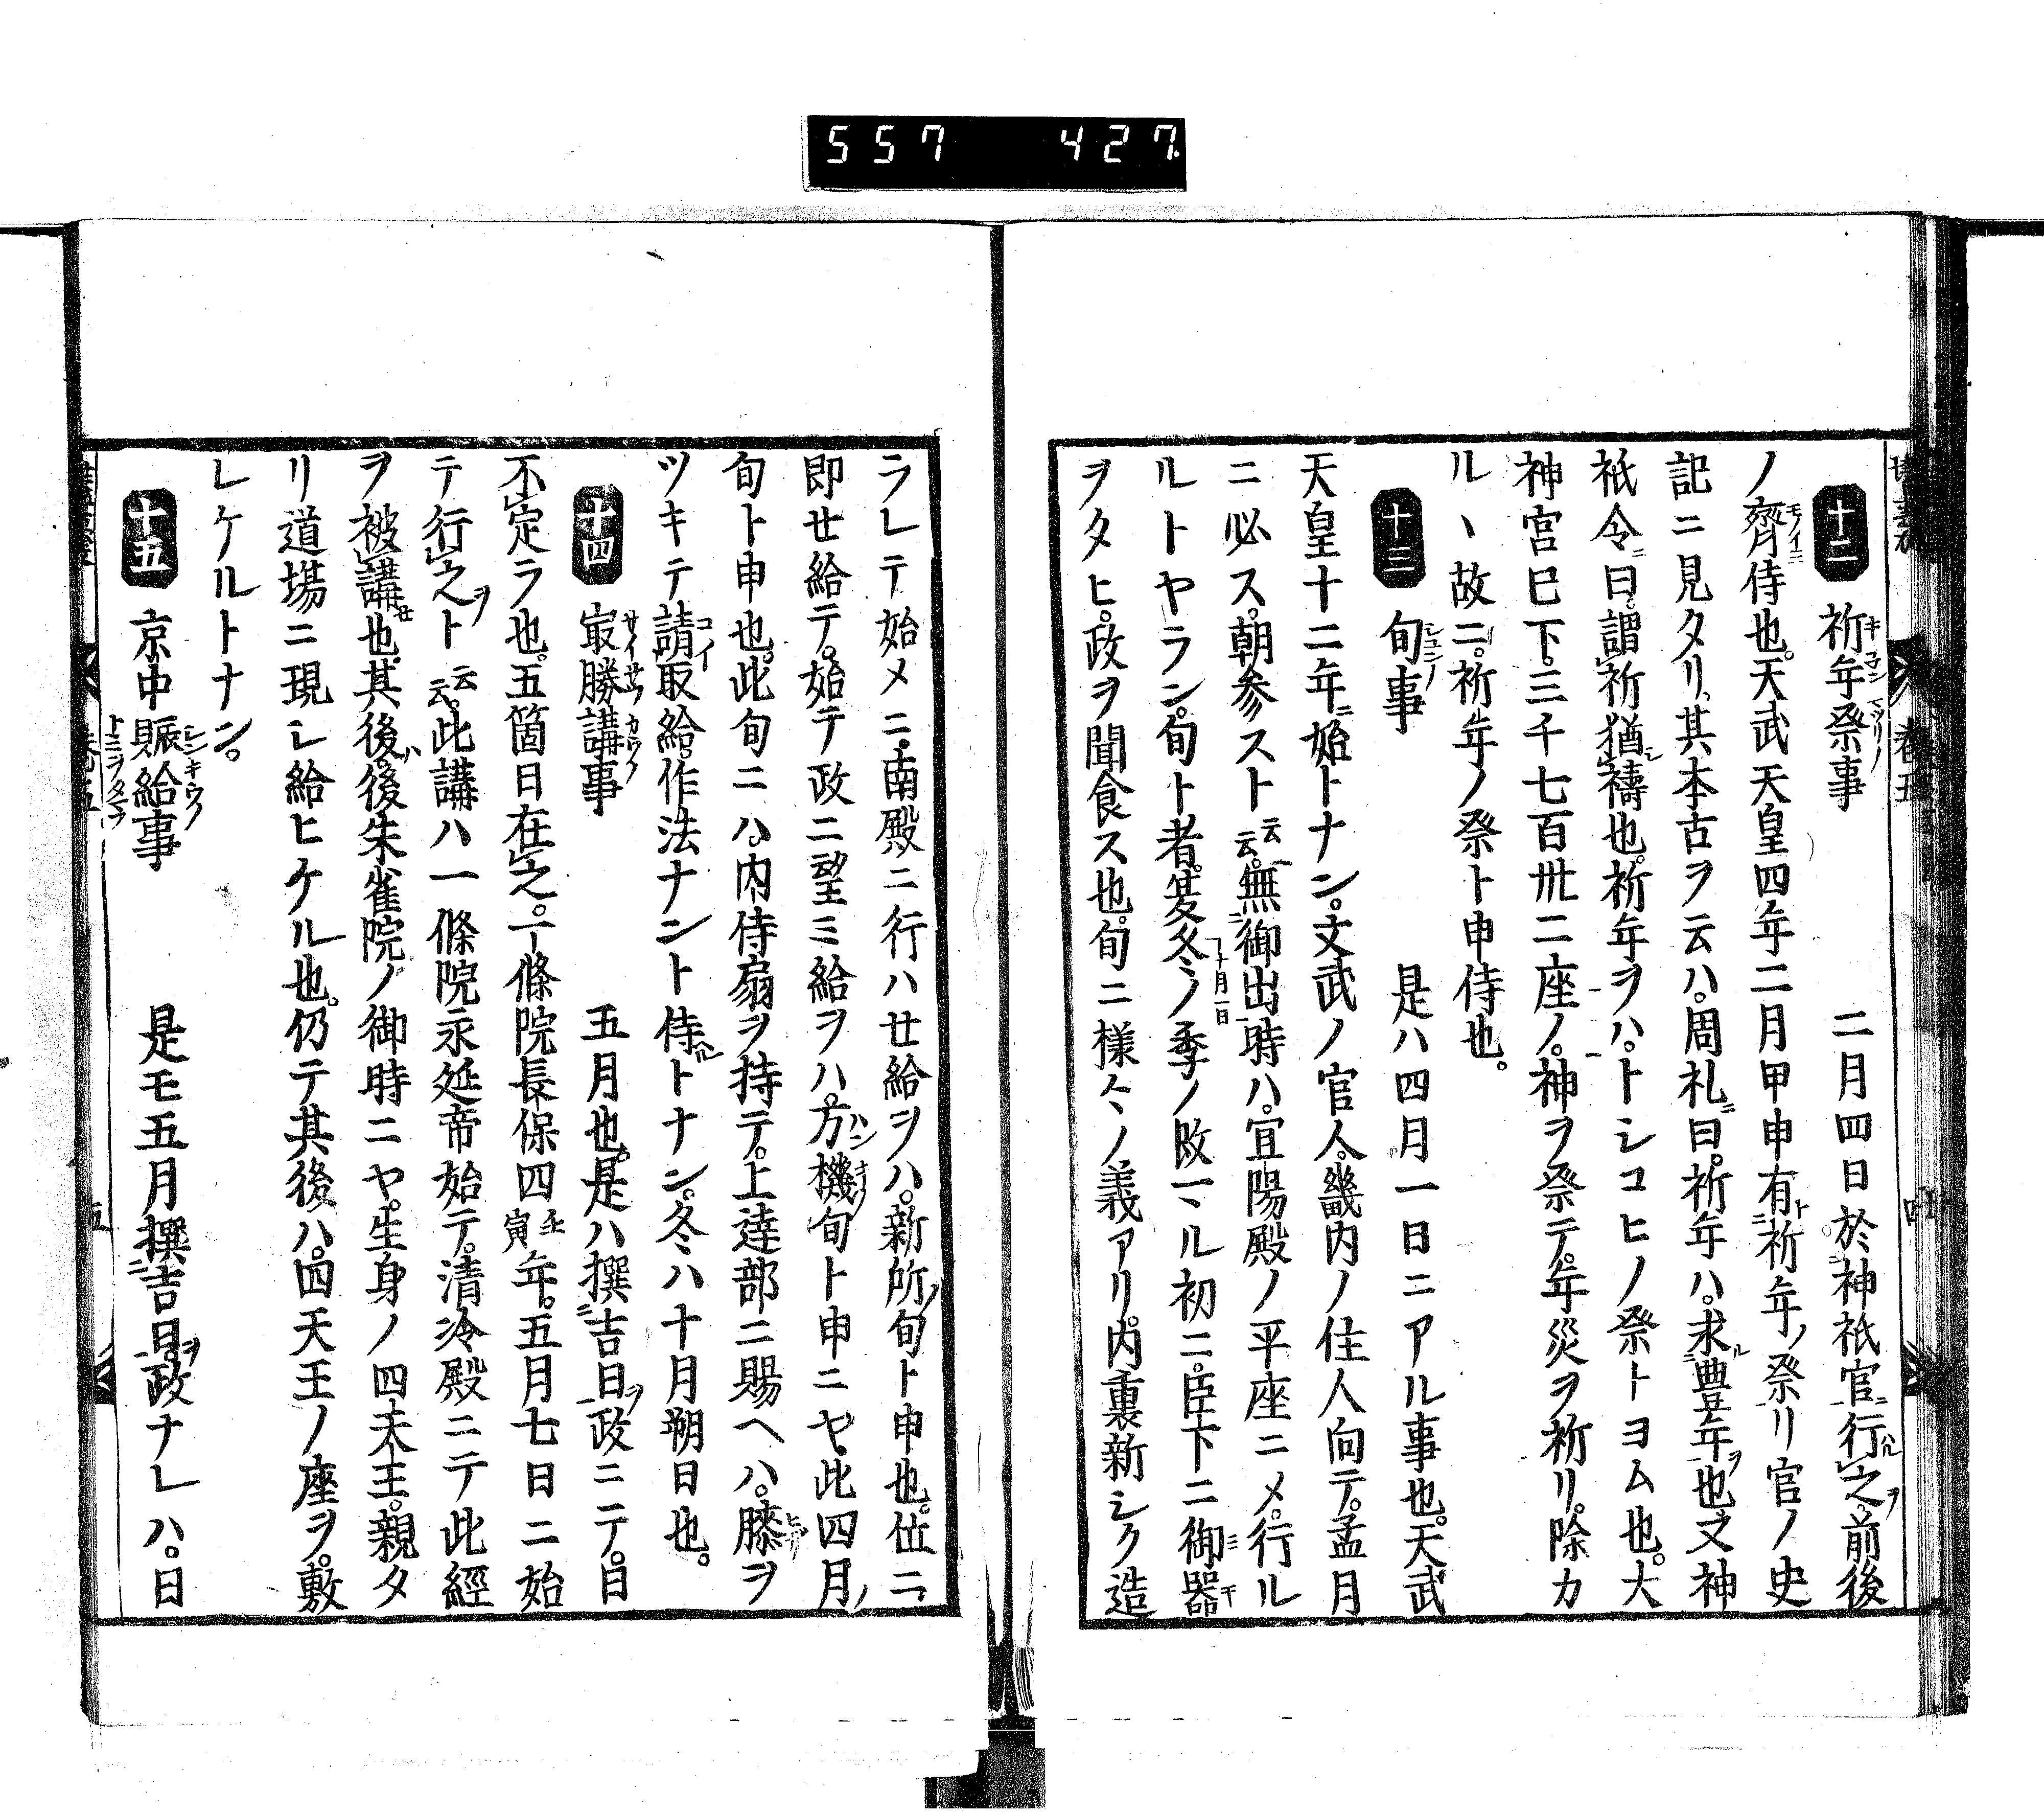 557 427.
十二 祈年祭事 二月四日於神祇官行之前後
ノ齊侍也。天武天皇四年二月甲申有祈年ノ祭リ官ノ史
記ニ見タリ。其本古ヲ云ハ。周礼曰。祈年ハ。求豊年也又神
祇令曰。謂祈猶禱也。祈年ヲハ。トシコヒノ祭トヨム也。大
神宮已下。三千七百卅二座ノ。神ヲ祭テ。年災ヲ祈リ。除カ
ルヽ故ニ。祈年ノ祭ト申侍也。
十三 旬事 是ハ四月一日ニアル事也。天武
天皇十二年始トナン。文武ノ官人。畿内ノ住人向テ。孟月
ニ必ス。朝参スト云云。無御出時ハ。宜陽殿ノ平座ニメ。行ル
ルトヤラン。旬ト者。夏冬ノ季ノ改マル初ニ。臣下ニ御器
ヲタヒ。政ヲ聞食ス也。旬ニ様々ノ義アリ。内裏新シク造
ラレテ始メニ南殿ニ行ハせ給ヲハ。新所旬ト申也。位ニ
即せ給テ。始テ政ニ望ミ給ヲハ。万機旬ト申ニヤ。此四月ノ
旬ト申也。此旬ニハ。内侍扇ヲ持テ。上達部ニ賜ヘハ。膝ヲ
ツキテ請取給。作法ナント侍トナン。冬ハ十月朔日也。
十四 最勝講事 五月也。是ハ撰吉日政ニテ。日
不定ラ也。五箇日在之。一條院長保四壬寅年。五月七日ニ始
テ行之ト云云。此講ハ一條院永延帝始テ。清冷殿ニテ此經
ヲ被講也。其後。後朱雀院ノ御時ニヤ。生身ノ四天王。親タ
リ道場ニ現シ給ヒケル也。仍テ其後ハ。四天王ノ座ヲ。敷
レケルトナン。
十五 京中賑給事 是モ五月撰吉日。政ナレハ。日